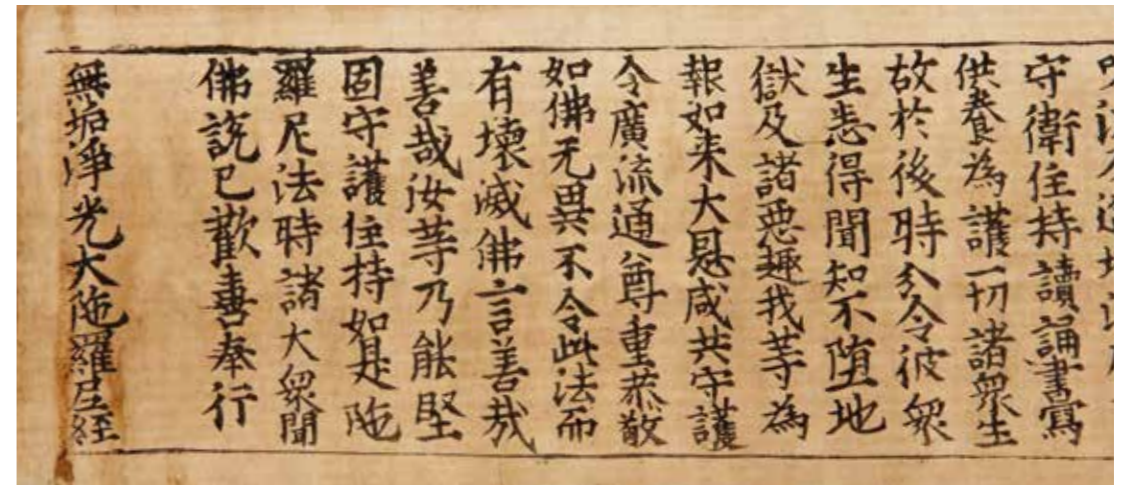 守衛住持讀誦書寫
供養為護一切諸眾生
故於後時分令彼眾
生悉得聞知不墮地
獄及諸惡趣我等為
報如来大恩咸共守護
令廣流通尊重恭敬
如佛无異不令此法而
有壞滅佛言善哉
善哉汝等乃能堅
固守護住持如是陁
羅尼法時諸大眾聞
佛說已歡喜奉行
無垢淨光大陁羅尼経